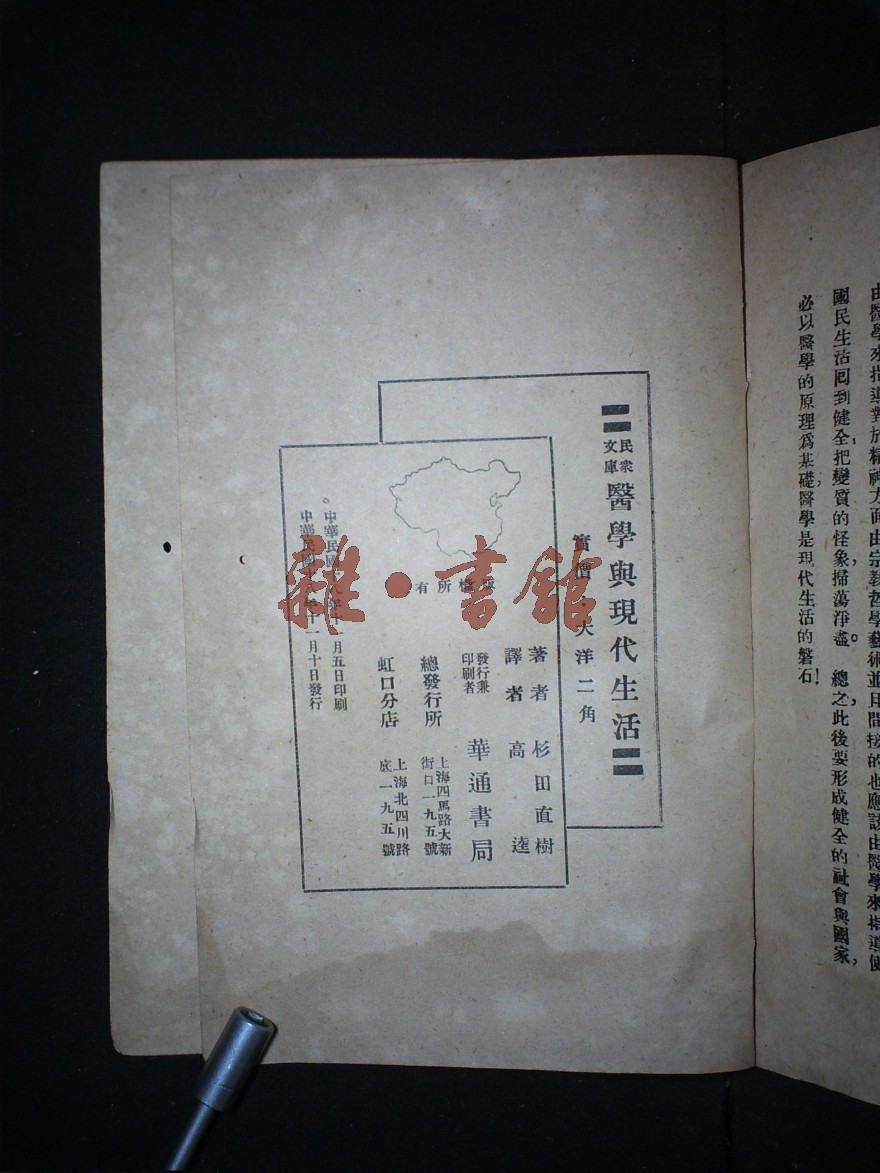 由醫學來指導對於精神方面由宗教哲學藝術並且間接的也應該由醫學來指導使
國民生活回到健全,把變質的怪象掃蕩淨盡。總之,此後要形成健全的社會與國家,
必以醫學的原理爲基礎,醫學是現代生活的磐石!
民衆文庫
醫學與現代生活
實價大洋二角
版權所有
著者 杉田直樹
譯者 高逵
發行兼印刷者 華通書局
總發行所 上海四馬路大新街口一九五號
虹口分店 上海北四川路底一九五號
中華民國十八年十一月五日印刷
中華民國十八年十一月十日發行
雜·書館